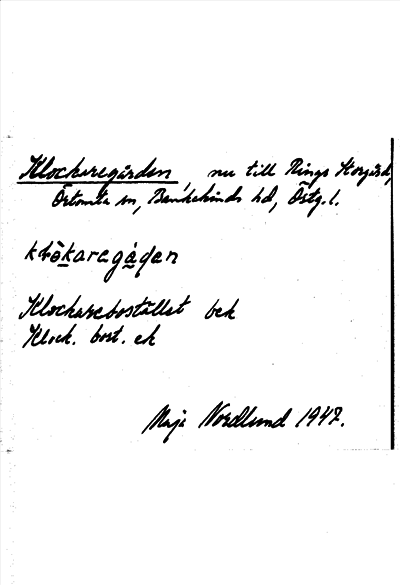 Klockaregården, nu till Rings Storgård,
Örtomta sn, Bankekinds hd, Östg. l.
klòkaragạ̀ɖan
Klockarebostället bek
Klock. bost. ek
Maja Nordlund 1947.